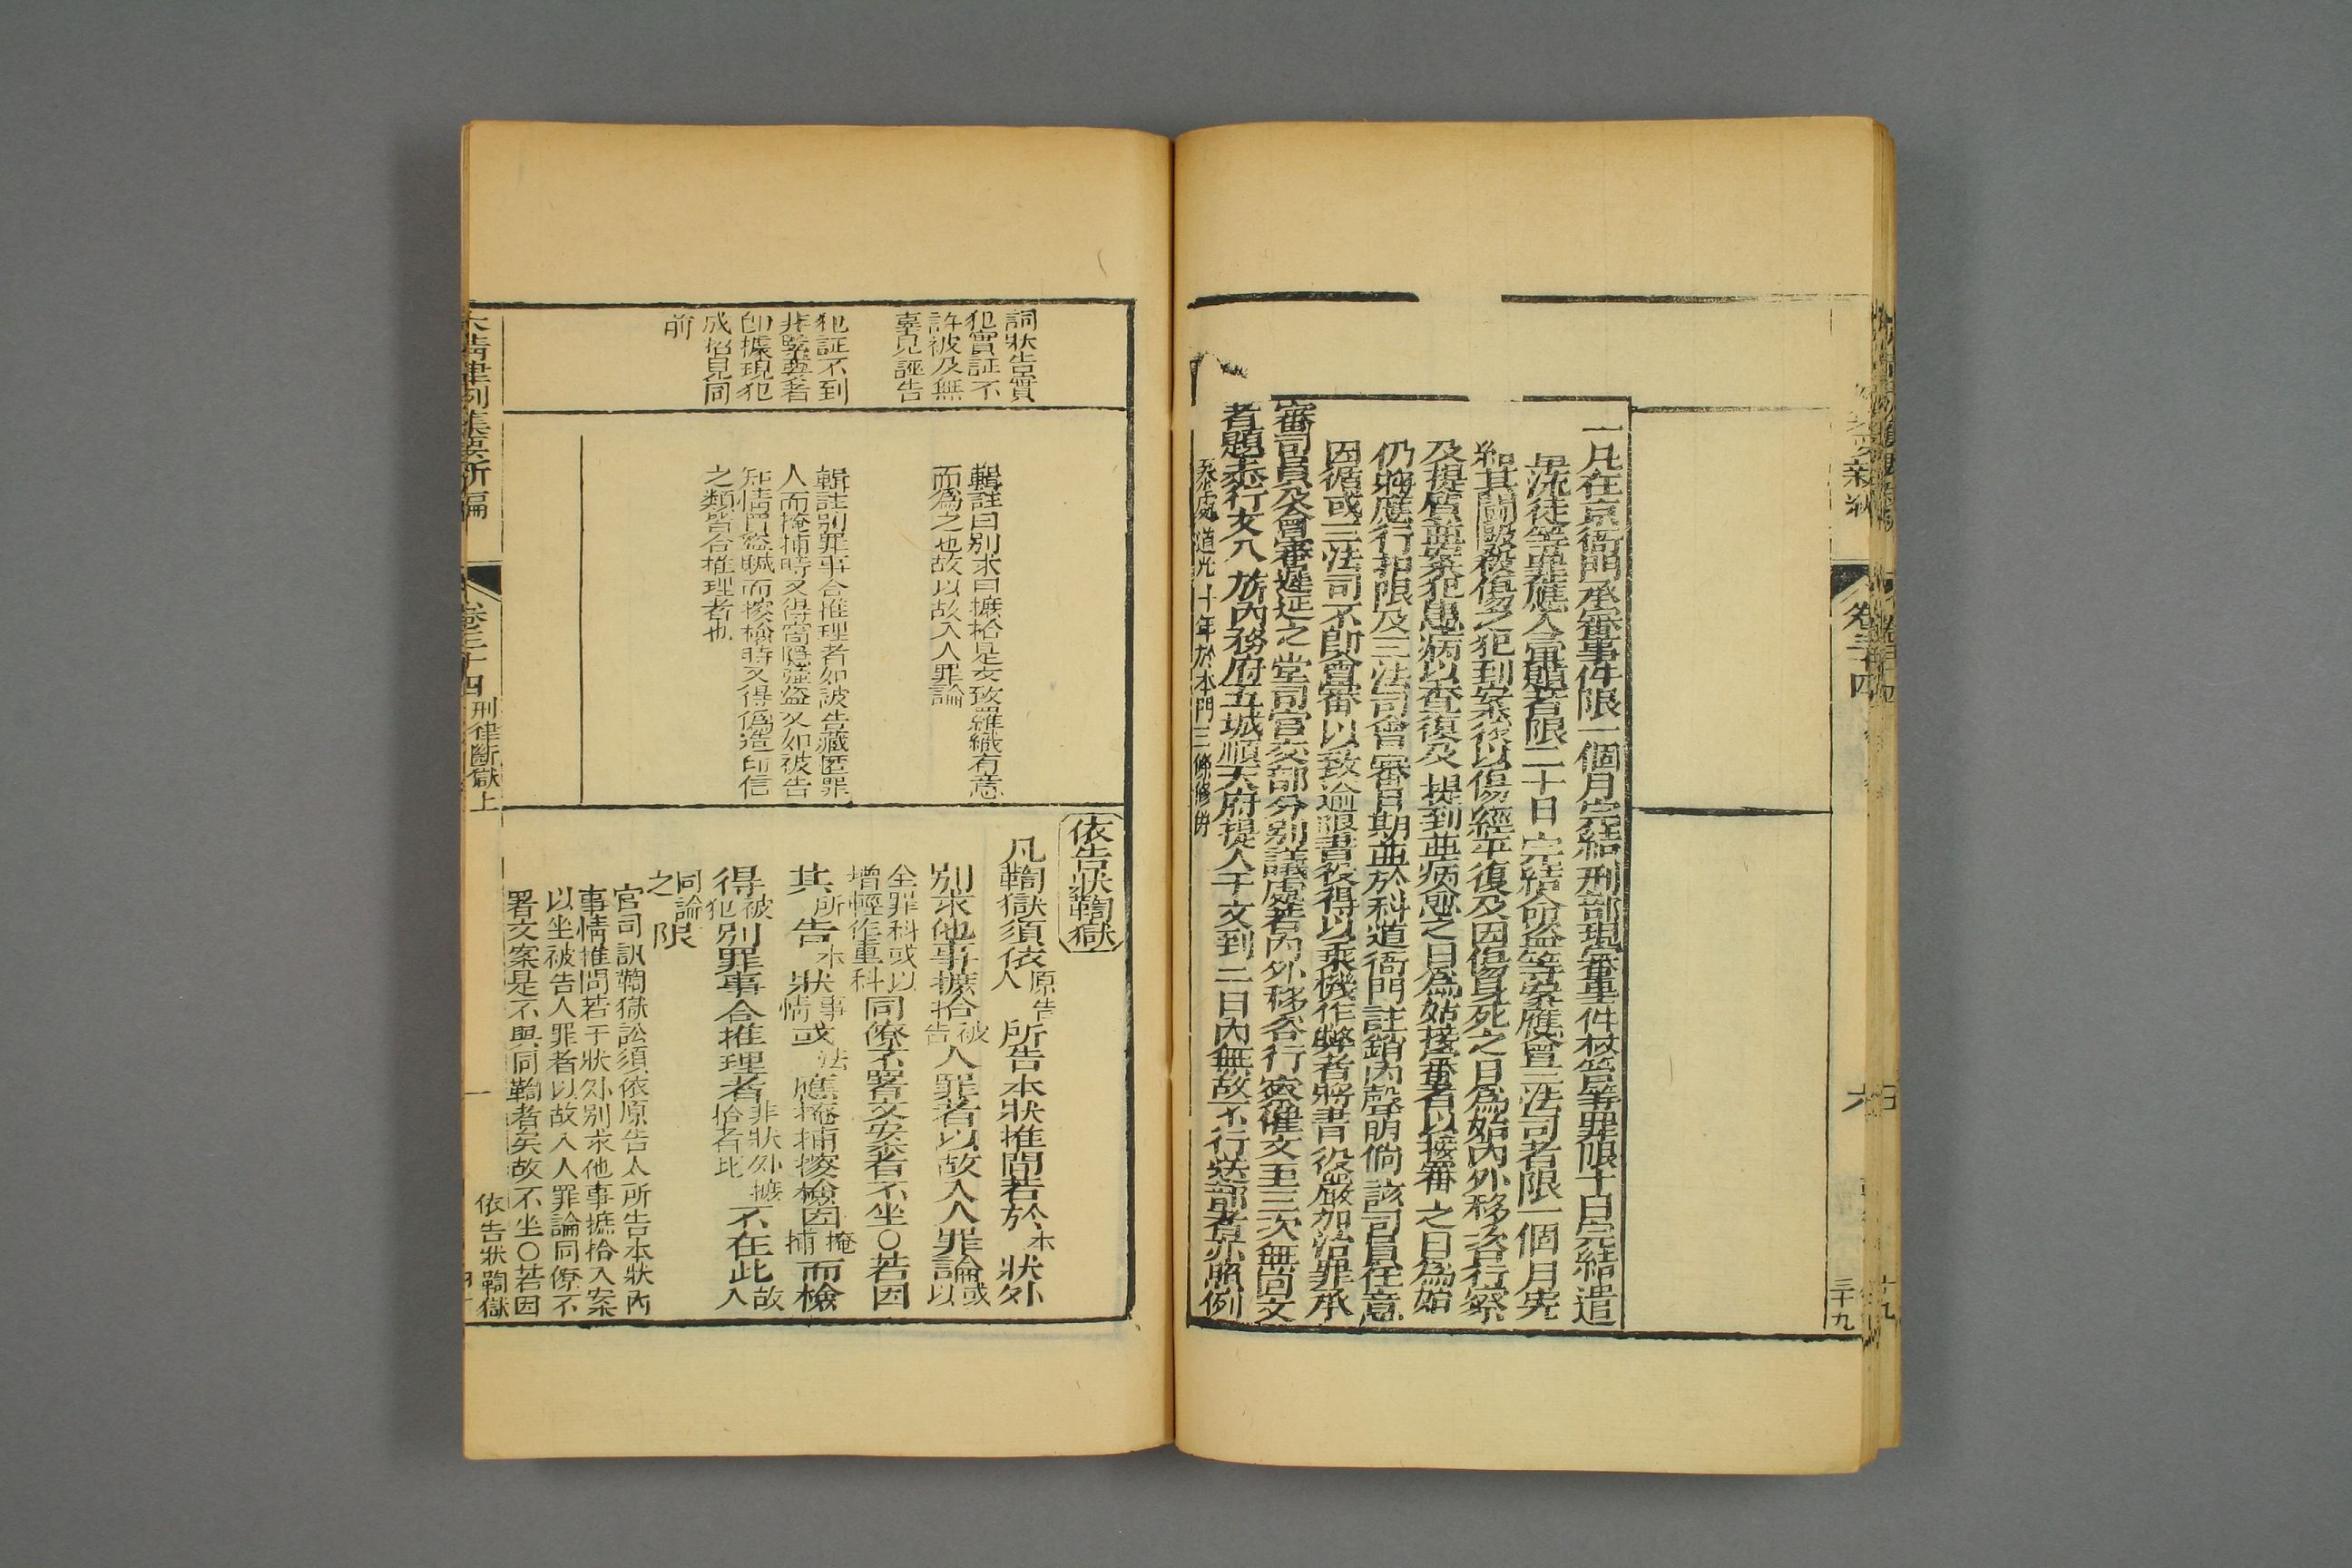 一凡在京衙門承審事件限一個月完結刑部現審事件杖笞等罪限十日完結遣
軍流徒等罪應入官贓者限二十日完結命盜等案應會三法司者限一個月完
結其鬭毆殺傷之犯到案後以傷經平復及因傷身死之日為始內外移咨行察
及提質並案犯患病以查復及提到並病愈之日為始接審者以接審之日為始
仍將應行扣限及三法司會審日期並於科道衙門註銷內聲明倘該司員任意
因循或三法司不即會審以致逾限書役得以乘機作弊者將書役嚴加治罪承
審司員及會審遲延之堂司官交部分別議處若內外移咨行察催文至三次無回文
者題參行文八旂內務府五城順天府提人于文到二日內無故不行送部者亦照例
參處 道光十年於本門三條修併
卷三十四
六
三十九
詞狀告實
犯實証不
許被及無
辜見誣告
犯証不到
非緊要者
即據現犯
成招見同
前
輯註曰別求曰摭拾是妄致羅織有意
而為之也故以故入人罪論
輯註別罪事合推理者如被告藏匿罪
人而掩捕時又得窩隱強盜又如被告
知情買盜贓而搜檢時又得偽造印信
之類皆合推理者也
依告狀鞫獄
凡鞫獄須依原告人所告本狀推問若於本狀外
別求他事摭拾被告人罪者以故入人罪論或以
全罪科或以增輕作重科同僚不署文案者不坐○若因
其所告本狀事情或法應掩捕搜檢因掩捕而檢
得被犯別罪事合推理者非狀外摭拾者比不在此故入
同論之限
官司訊鞫獄訟須依原告人所告本狀內
事情推問若于狀外別求他事摭拾入案
以坐被告人罪者以故入人罪論同僚不
署文案是不與同鞫者矣故不坐○若因
大清律例集要新編
卷三十四
刑律斷獄上
一
依告狀鞫獄